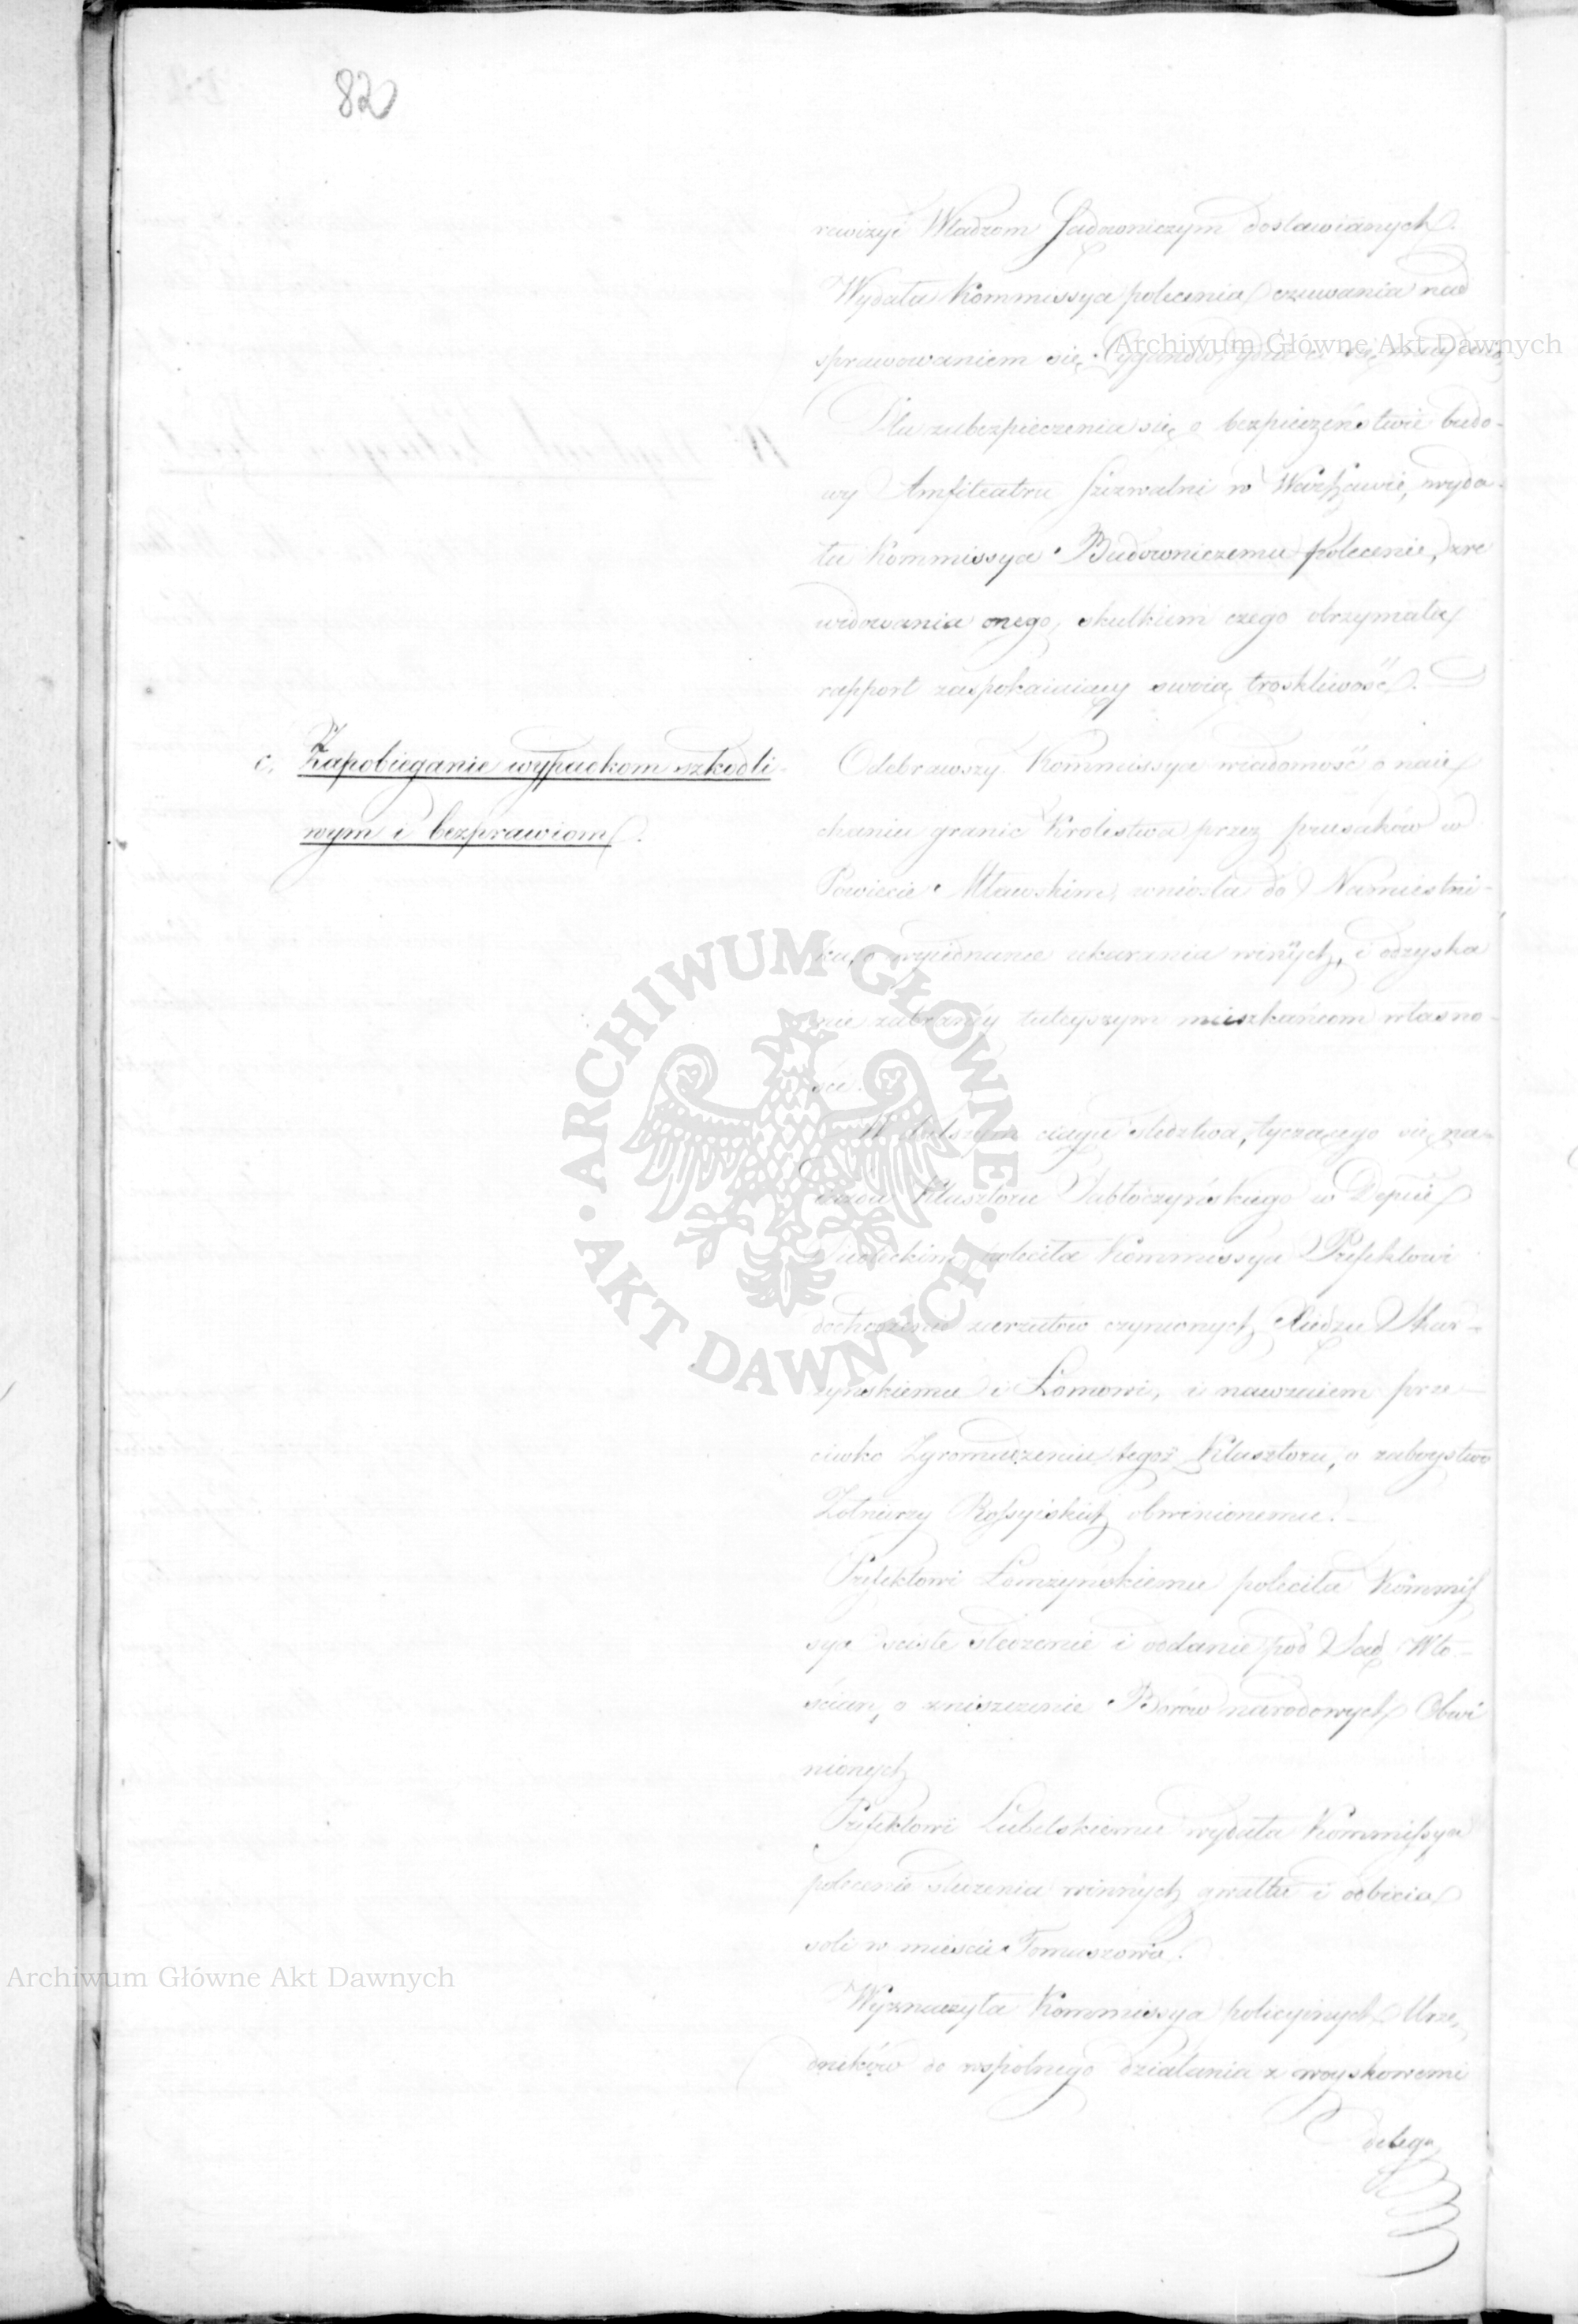 82
rewizyi Władzom Sądowniczym dostawianych.
Wydała Kommissya polecenia czuwania nad
sprawowaniem się Cyganów, gdzie się
Archiwum Główne Akt Dawnych
Dla zabezpieczenia się o bezpieczeństwie budo-
wy Amfiteatru Szczwalni w Warszawie, wyda-
ła Kommissya Budowniczemu polecenie, zre
widowania onego, skutkiem czego otrzymała
rapport zaspokaiaiący swoią troskliwość.
c. Zapobieganie wypadkom szkodli-
wym i bezprawiom.
Odebrawszy Kommissya wiadomość o naie
chaniu granic Krolestwa przez prusaków w
Powiecie Mławskim, wniosła do Namiestni-
ka, o wyiednanie ukarania winnych, i odzyska
nie zabranéy tuteyszym mieszkańcom własno-
ści.
W dalszym ciągu śledztwa, tyczącego się na-
Klasztoru Jabłoczyńskiego w Depcie
Siedleckim, poleciła Kommissya Prefektowi
dochodzenie zarzutów czynionych Xiędzu Skar-
żyńskiemu i Łomowi, i nawzaiem prze-
ciwko Zgromadzeniu tegoż Klasztoru, o zaboystwo
Żołnierzy Rossyiskich obwinionemu.
Prefektowi Łomżyńskiemu poleciła Kommis
sya ściśłe śledzenie i oddanie pod Sąd Wło-
ścian, o zniszczenie Borów narodowych Obwi
nionych
Prefektowi Lubelskiemu wydała Kommissya
polecenie śledzenia winnych gwałtu i odbicia
soli w mieście Tomaszowie.
Archiwum Główne Akt Dawnych
Wyznaczyła Kommissya policyinych Urzę-
dników do wspolnego działania z woyskowemi
delega
ARCHIWUM GŁÓWNE AKT DAWNYCH